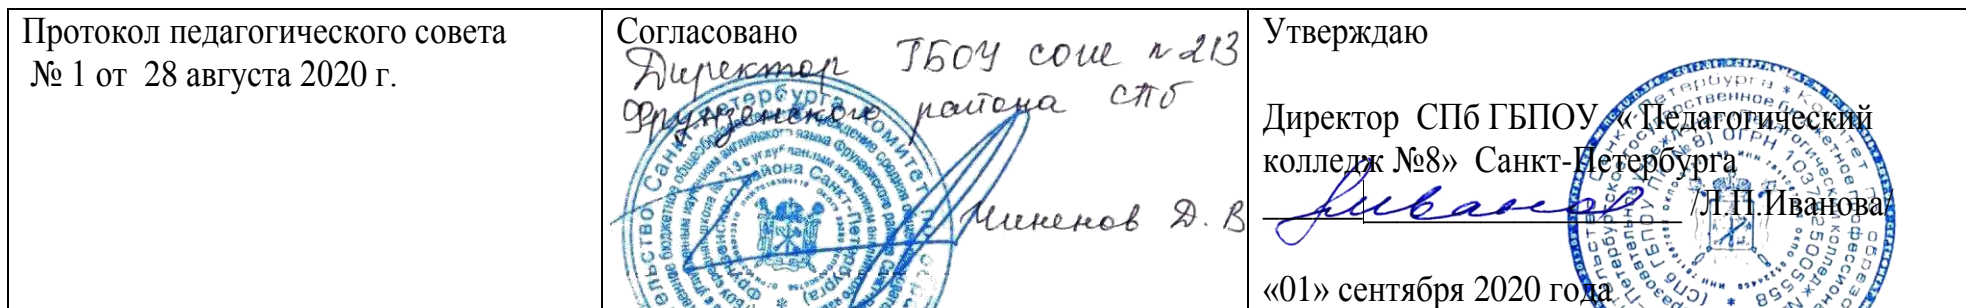 Протокол педагогического совета
№ 1 от 28 августа 2020 г.
Согласовано
Директор ГБОУ сош №213
Фрунзенского района СПб
Д. В
Утверждаю
Директор СПб ГБПОУ « Педагогический
колледж №8» Санкт-Петербурга
/Л.П.Иванова/
«01» сентября 2020 года